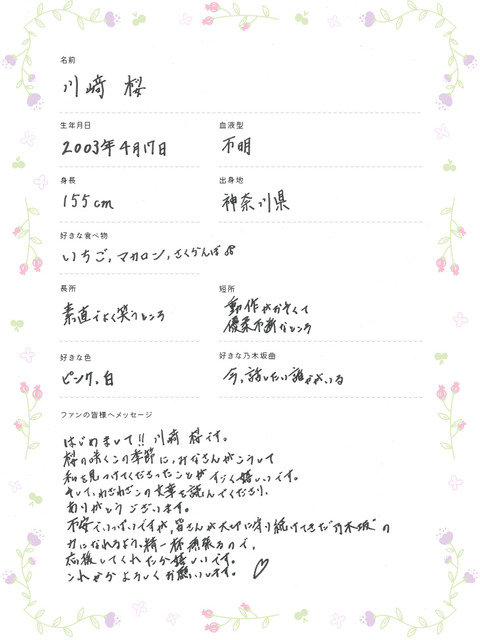 名前
川﨑 桜
生年月日
血液型
2003年4月17日
不明
身長
出身地
155cm
神奈川県
好きな食べ物
いちご,マカロン,さくらんぼ
長所
短所
素直でよく笑うところ
動作がおそくて
優柔不断なところ
好きな色
好きな乃木坂曲
ピンク.白
今,話したい誰かがいる
ファンの皆様へメッセージ
はじめまして!! 川﨑 桜です。
桜の咲くこの季節に,みなさんがこうして
私を見つけてくださったことがすごく嬉しいです。
そして,わざわざこの文章を読んでくださり,
ありがとうございます。
不安でいっぱいですが,皆さんが大切に守り続けてきた"乃木坂"の
力になれるよう,精一杯頑張るので,
応援してくれたら嬉しいです。
これからよろしくお願いします。♡